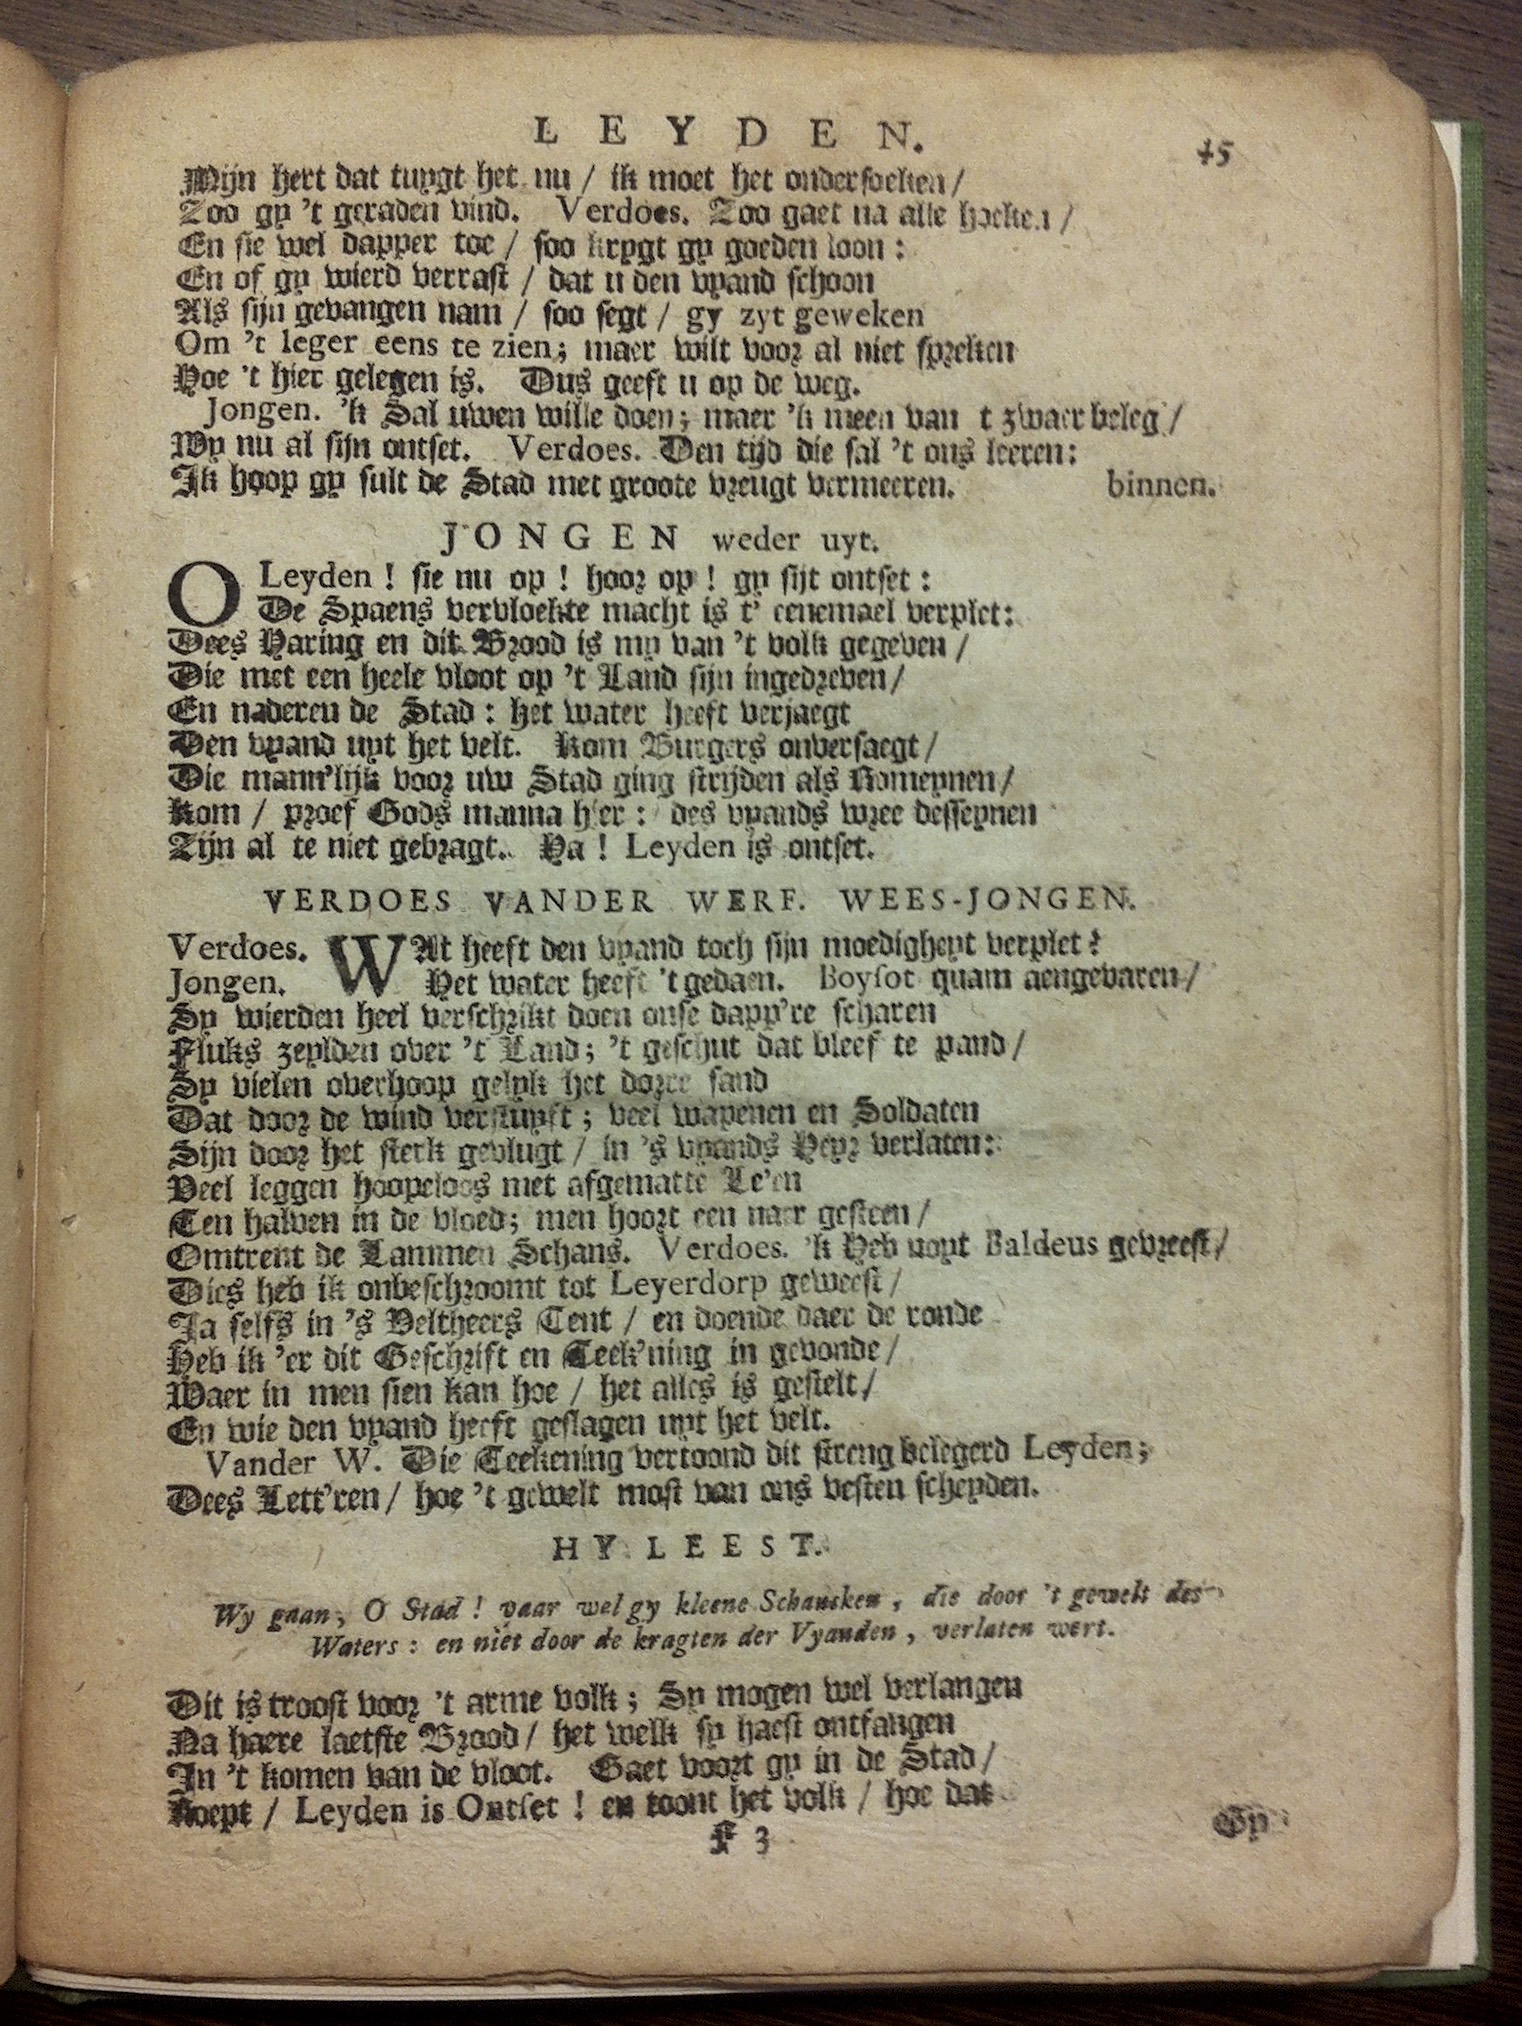 LEYDEN. 45
Mijn hert dat tuygt het nu / ik moet het ondersoeken /
Zoo gy 't geraden vind. Verdoes. Zoo gaet na alle hoeken /
En sie wel dapper toe / soo krygt gy goeden loon :
En of gy wierd verrast / dat u den vyand schoon
Als sijn gevangen nam / soo segt / gy zyt geweken
Om 't leger eens te zien; maer wilt voor al niet spreken
Hoe 't hier gelegen is. Dus geeft u op de weg.
Jongen. 'k Sal uwen wille doen; maer 'k meen van t zwaer beleg /
Wy nu al sijn ontset. Verdoes. Den tijd die sal 't ons leeren:
Ik hoop gy sult de Stad met groote vreugt vermeeren. binnen.
JONGEN weder uyt.
O Leyden ! sie nu op ! hoor op ! gy sijt ontset :
De Spaens vervloekte macht is t' eenemael verplet:
Dees Haring en dit Brood is my van 't volk gegeven /
Die met een heele vloot op 't Land sijn ingedreven /
En naderen de Stad : het water heeft verjaegt
Den vyand uyt het velt. Kom Burgers onversaegt /
Die mann'lijk voor uw Stad ging strijden als Romeynen /
Kom / proef Gods manna hier : des vyands wree desseynen
Zijn al te niet gebragt. Ha ! Leyden is ontset.
VERDOES VANDER WERF. WEES-JONGEN.
Verdoes. WAt heeft den vyand toch sijn moedigheyt verplet?
Jongen. Het water heeft 't gedaen. Boysot quam aengevaren /
Sy wierden heel verschrikt doen onse dapp're scharen
Fluks zeylden over 't Land; 't geschut dat bleef te pand /
Sy vielen overhoop gelyk het dorre sand
Dat door de wind verstuyft ; veel wapenen en Soldaten
Sijn door het sterk gevlugt / in 's vyands Heyr verlaten:
Veel leggen hoopeloos met afgematte Le'en
Ten halven in de vloed; men hoort een naer gesteen /
Omtrent de Lammen Schans. Verdoes. 'k Heb noyt Baldeus gevreest /
Dies heb ik onbeschroomt tot Leyerdorp geweest /
Ja selfs in 's Veltheers Tent / en doende daer de ronde
Heb ik 'er dit Geschrift en Teek'ning in gevonde /
Waer in men sien kan hoe / het alles is gestelt /
En wie den vyand heeft geslagen uyt het velt.
Vander W. Die Teekening vertoond dit streng belegerd Leyden;
Dees Lett'ren / hoe 't gewelt most van ons vesten scheyden.
HY LEEST.
Wy gaan, O Stad ! vaar wel gy kleene Schansken , die door 't gewelt des
Waters : en niet door de kragten der Vyanden , verlaten wert.
Dit is troost voor 't arme volk ; Sy mogen wel verlangen
Na haere laetste Brood / het welk sy haest ontfangen
In 't komen van de vloot. Gaet voort gy in de Stad /
Roept / Leyden is Ontset ! en toont het volk / hoe dat
F 3 Gy